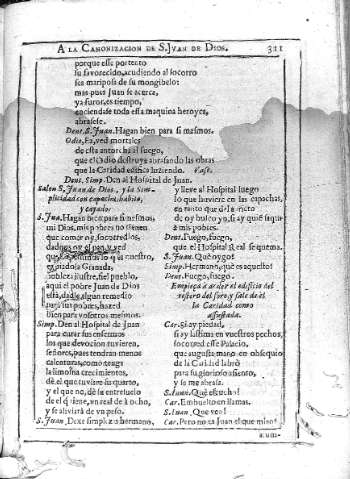 A LA CANONIZACION DE S. JVAN DE DIOS. 311
porque esse portento
su favorecido, acudiendo al socorro
sea mariposa de su mongibelo:
mas pues Juan se acerca,
ya furores, es tiempo,
enciendase toda esta maquina heroyca,
abrasese.
Dent. S. Juan. Hagan bien para si mesmos.
Odio. Ea, ved mortales
de esta antorcha al fuego,
que el Odio destruye abrasando las obras
que la Caridad edifica luziendo. Vase.
Dent. Simp. Den al Hospital de Juan.
Salen S. Juan de Dios, y la Simplicidad con capacha, habito,
y cayado.
S. Jua. Hagan bien para si mesmos,
mi Dios, mis pobres no tienen
que comer oy, socorredlos,
dadnos oy el pan, y ved
que es lo que nuestro,
Granada,
noble, ilustre, fiel pueblo,
aqui el pobre Juan de Dios
està, dadle algun remedio
para sus pobres, hazed
bien para vosotros mesmos.
Simp. Den al Hospital de Juan
para curar sus enfermos
los que devocion tuvieren,
señores, pues tendran menos
calenturas, como tenga
la limosna crecimientos,
dè el que tuviere su quarto,
y el que no, dè su entresuelo
de el q̃ tiene, un real de à ocho,
y se aliviarà de un peso.
S. Juan. Dexe simplezas hermano,
y lleve al Hospital luego
lo que huviere en las capachas,
de oy buelvo yo, si ay quie
mis pobres.
Dent. Fuego, fuego,
que el Hospital Real se quema.
S. Juan. Què oygo!
Simp. Hermano, què es aquello?
Dent. Fuego, fuego.
Empieça à arder el edificio del
testero del foro, y sale de èl
la Caridad como
assustada.
Car. Si ay piedad,
si ay lastima en vuestros pechos,
socorred esse Palacio,
que augusta mano en obsequio
de la Caridad labrò
para su glorioso assiento,
y se me abrasa.
S. Juan. Què escucho!
Car. Embuelto en llamas.
S. Juan. Què veo!
Car. Perono